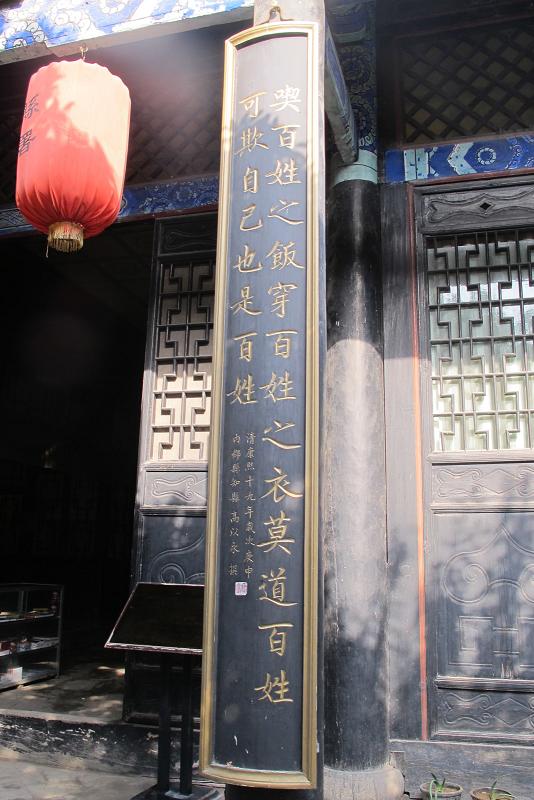 喫百姓之飯穿百姓之衣莫道百姓
可欺自己也是百姓
清康熙十九年歲次庚申
內鄉縣知縣高以永撰
縣署